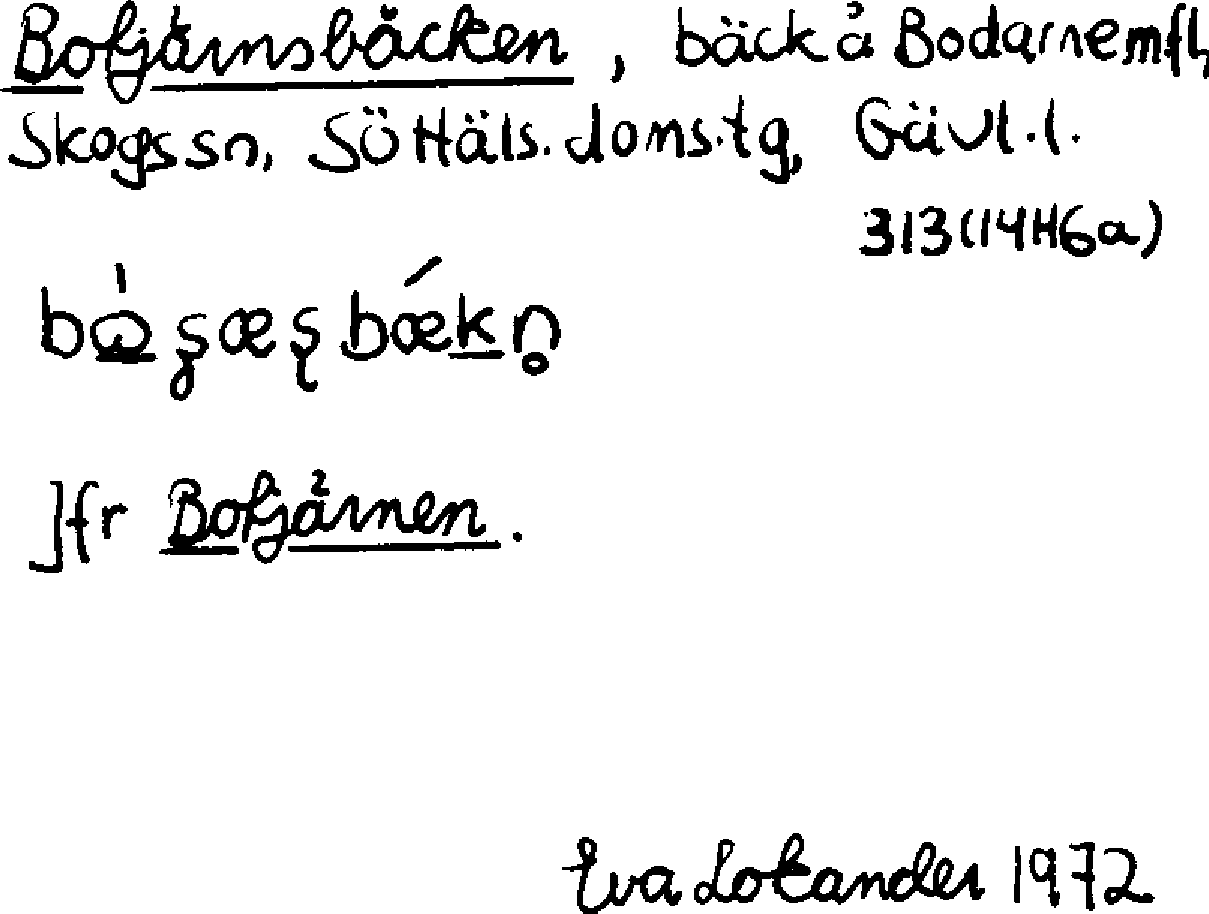 Botjärnsbäcken, bäck å Bodarne m fl,
Skogs sn, SöHäls. doms.tg, Gävl. l.
313 (14H6a)
Jfr Botjärnen.
Eva Lokander 1972